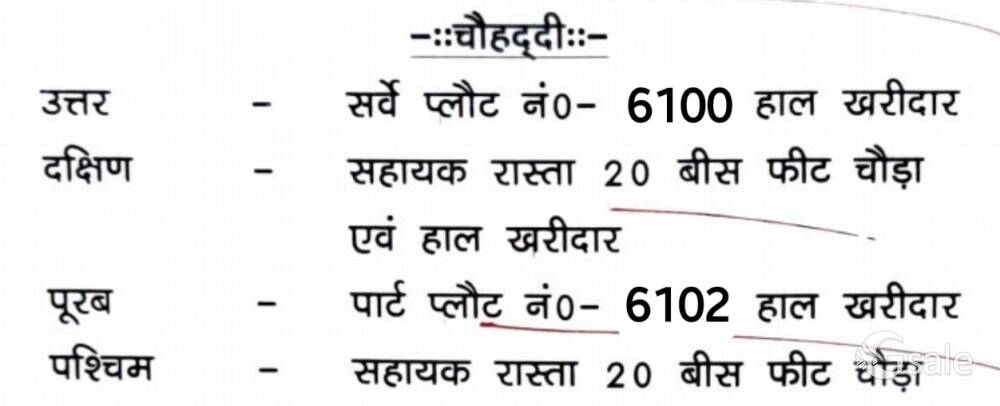 -::चौहद्दी::-
उत्तर - सर्वे प्लौट नं0- 6100 हाल खरीदार
दक्षिण - सहायक रास्ता 20 बीस फीट चौड़ा
एवं हाल खरीदार
पूरब - पार्ट प्लौट नं0- 6102 हाल खरीदार
पश्चिम - सहायक रास्ता 20 बीस फीट चौड़ा
Gsale